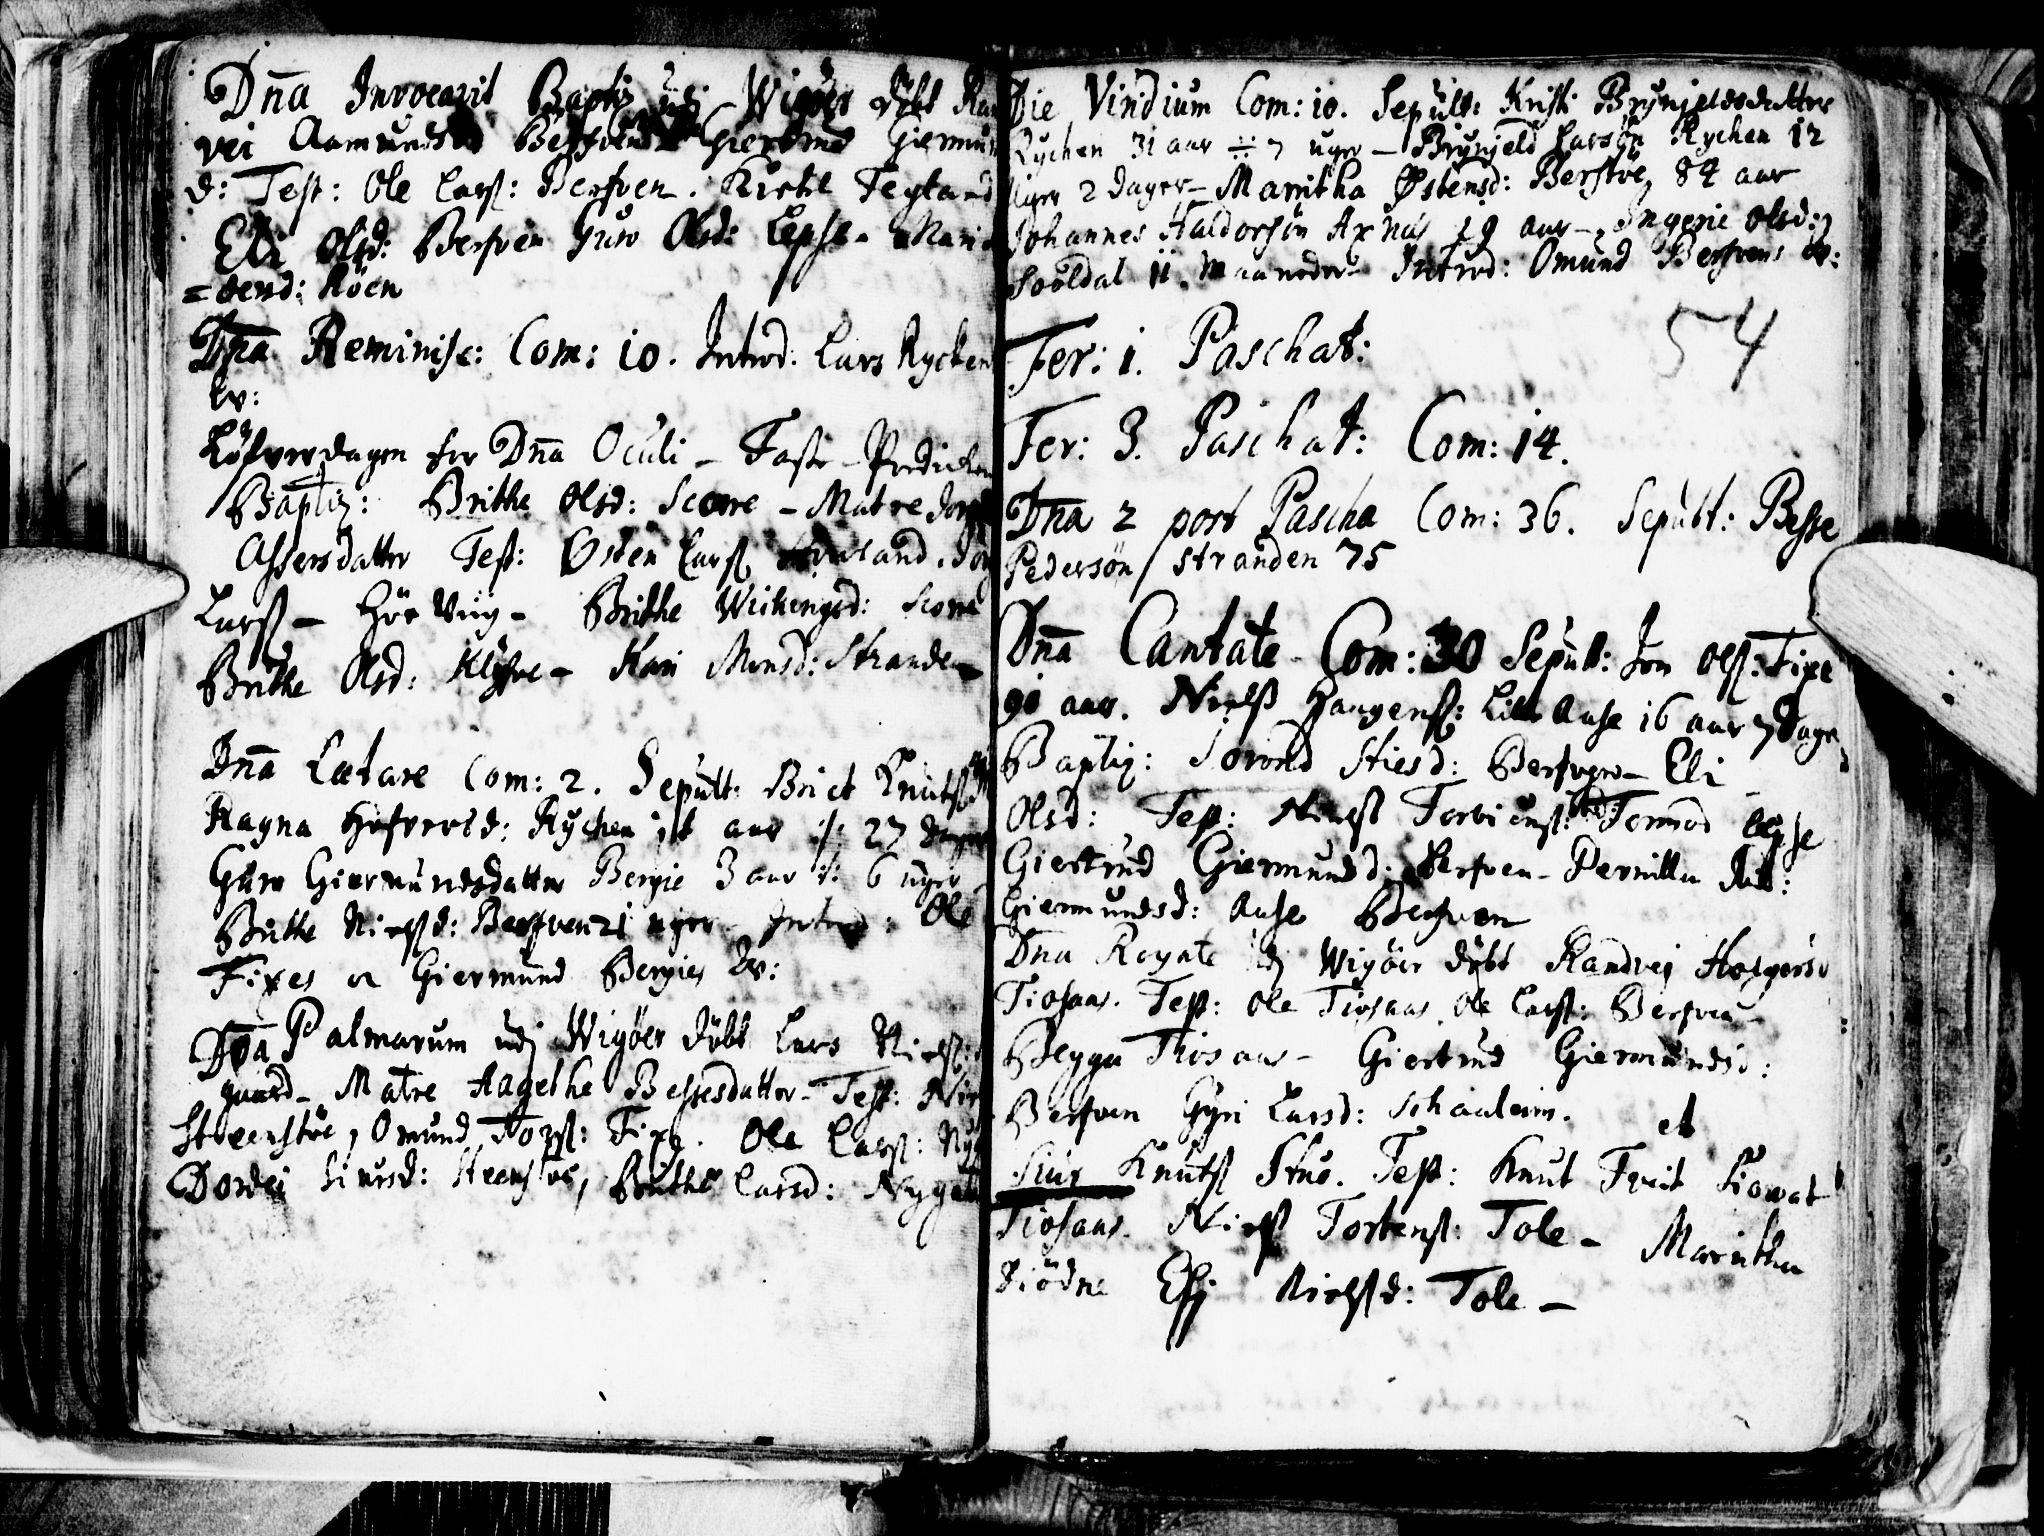 Dn̄a Invocavit Baptiz udj Wigöer döbt Ran
vei Aamundsd Berfven Giertrud Giermun
d: Test: Ole Larsß: Berfven. Kirtil Tegland
Eli Olsd: Berfven Guro Olsd: Lepse - Mari
=dersd: Röen
Dn̄a Reminisc: Com: 10. Introd: Lars Rychen
Qv:
Löfverdagen for Dn̄a Oculi - Faste-Predichen
Baptiz: Brithe Olsd: Scorre - Matre
Assersdatter Test: Østen Larsß
Larsß - Brithe Wichingsd: Scorre
Brithe Olsd: Klyfve - Kari Monsd: Stranden
Dn̄a Lætare Com: 2. Sepult: Briet Knutsd
Ragna Rychen aar ./. 27 dager
Guro Giermundsdatter Bergie 3 aar ./. 6 uger -
Brithe Nielsd: Berfven 21 uger - Introd: Ole
Fixes oc Giermund Bergies Qv:
Dn̄a Palmarum udj Wigöer döbt Lars Nielsß:
gaard - Matre Aagethe Bessesdatter - Test:
Steenstöe, Omund Torsß: Fixe. Ole Larsß:
Dordei Siursd: Steenstöe, Brithe Larsd: Nygar
Die Viridium Com: 10. Sepult: Krist: Brynjeldsdatter
Rychen 31 aar ÷ 7 uger - Brynjeld Larsön Rychen 12
Uger 2 dager - Marritha Østensd: Berstöe, 84 aar
Johannes Haldorsön Axnes 19 aar - Ingerie Olsd:
Sööldal 11. Maaneder Introd: Omund Berfvens qv:
54
Fer: 1. Paschat:
Fer: 3. Paschat: Com: 14.
Dn̄a 2 post Pascha Com: 36. Sepult: Besse
Pedersön Stranden 75
Dn̄a Cantate - Com: 30 Sepult: Jon Olsß: Fixe
90 aar. Nielß Haagensß: Lille Aase 16 aar 7 Dage
Baptiz: Siesd: Berfven - Eli
Olsd: Test: Nielß Torbiensß: Tormod Lepse
Giertrud Giermundsd: Berfven - Pernilla
Giermundsd: Aase Berfven
Dn̄a Rogate udj Wigöer döbt Randvej Holgersd
Tiosaas. Test: Ole Tiosaas, Ole Larsß: Berfven
Beyga Tiosaas - Giertrud Giermundsd:
Berfven Gyri Larsd: Schaaleim.
et
Siur Knutsß Stue. Test: Knut Tveit
Tiosaas. Nielß Tortensß: Tole - Maritha
Diödne Elsj Nielsd: Tole -